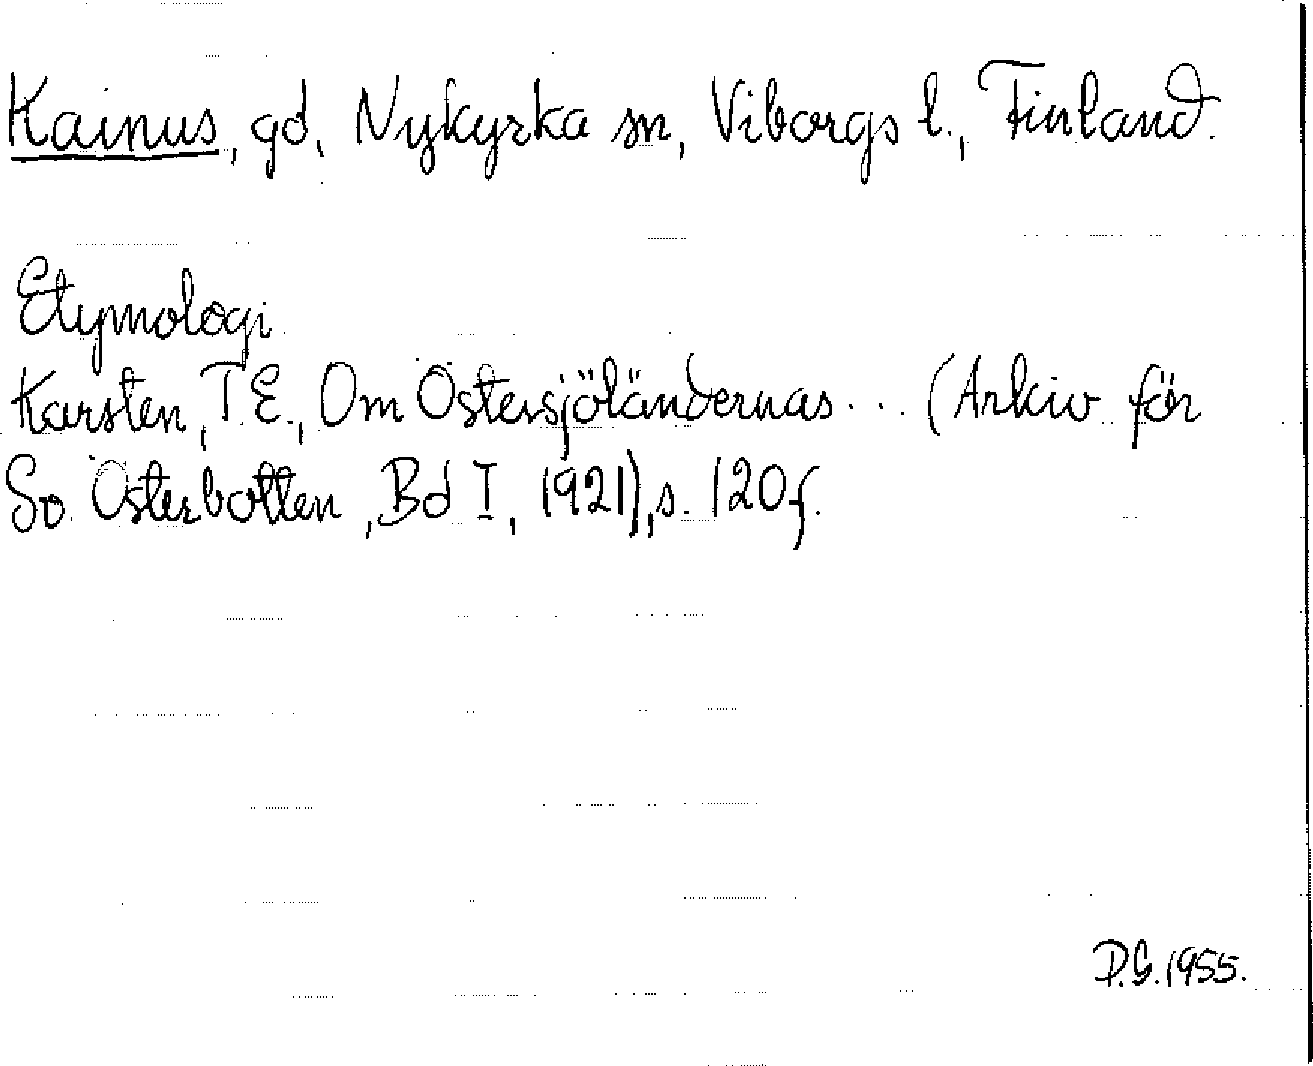 Kainus, gd, Nykyrka sn, Viborgs l., Finland.
Etymologi
Karsten, T.E., Om Östersjöländernas... (Arkiv för
Sv. Österbotten, Bd I, 1921), s. 120f.
P.G. 1955.